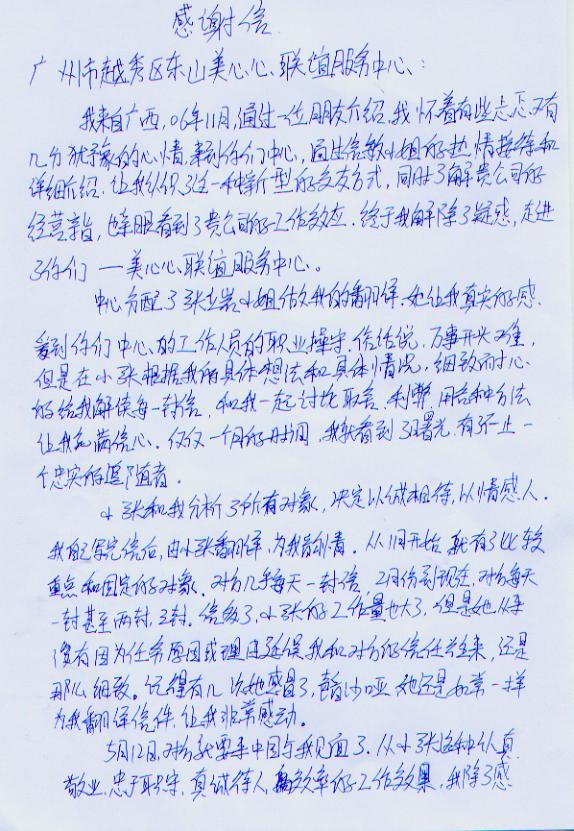 感谢信
广州市越秀区东山美心心联谊服务中心：
我来自广西，06年11月，通过一位朋友介绍，我怀着有些忐忑又有
几分犹豫的心情，来到你们中心，通过信敏小姐的热情接待和
详细介绍，让我认识了这一种新型的交友方式，同时了解贵公司的
经营宗旨，也亲眼看到了贵公司的工作效应，终于我解除了疑惑，走进
了你们——美心心联谊服务中心。
中心分配了张岩小姐做我的翻译，她让我真实的感
受到你们中心的工作人员的职业操守，俗话说，万事开头难，
但是在小张根据我的具体想法和具体情况，细致而耐心
的给我解读每一封信，和我一起讨论取舍、利弊，用各种方法
让我充满信心。仅仅一个月的时间，我就看到了曙光，有了不止一
个忠实的追随者。
小张和我分析了所有对象，决定以诚相待，以情感人。
我自己写完信后，由小张翻译，为我翻情。从1月开始，就有了比较
重点和固定的对象，对方几乎每天一封信，2月份到现在，对方每天
一封甚至两封、三封。信多了，小张的工作量也大了，但是她从来
没有因为任务原因或理由延误我和对方的信件往来，还是
那么细致。记得有几次她感冒了，声音沙哑，她还是如常一样
为我翻译信件，让我非常感动。
5月12日，对方就要来中国与我见面了，从小张这种认真
敬业，忠于职守，真诚待人，高效率的工作效果，我除了感